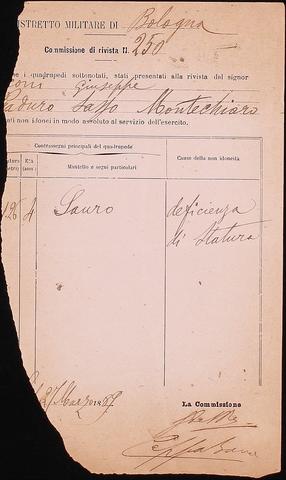 ISTRETTO MILITARE DI Bologna
Commissione di rivista N. 250
e i quadrupedi sottonotati, stati presentati alla rivista del signor
oni Giuseppe
Paduro Sasso Montechiaro
ati non idonei in modo assoluto al servizio dell'esercito.
Contrassegni principali del quadrupede
Causa della non idoneità
Età
(anni)
Mantello e segni particolari
126 4 Sauro deficienza
di Statura
27 Marzo 189
La Commissione